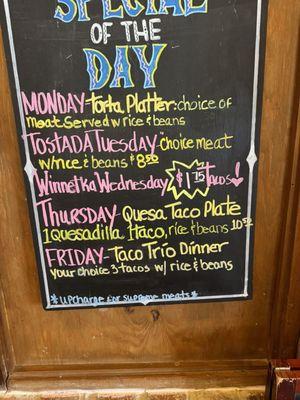 SPECIAL
OF THE
DAY
MONDAY-Torta Platter: choice of
meat served w/ rice & beans
TOSTADA Tuesday "choice meat
w/rice & beans $ 8.50
Winnetka Wednesday $1.75 Tacos
THURSDAY- Quesa Taco Plate
1 quesadilla 1 taco, rice & beans 10.50
FRIDAY- Taco Trío Dinner
your choice 3 tacos w/ rice & beans
*upcharge for supreme meats *